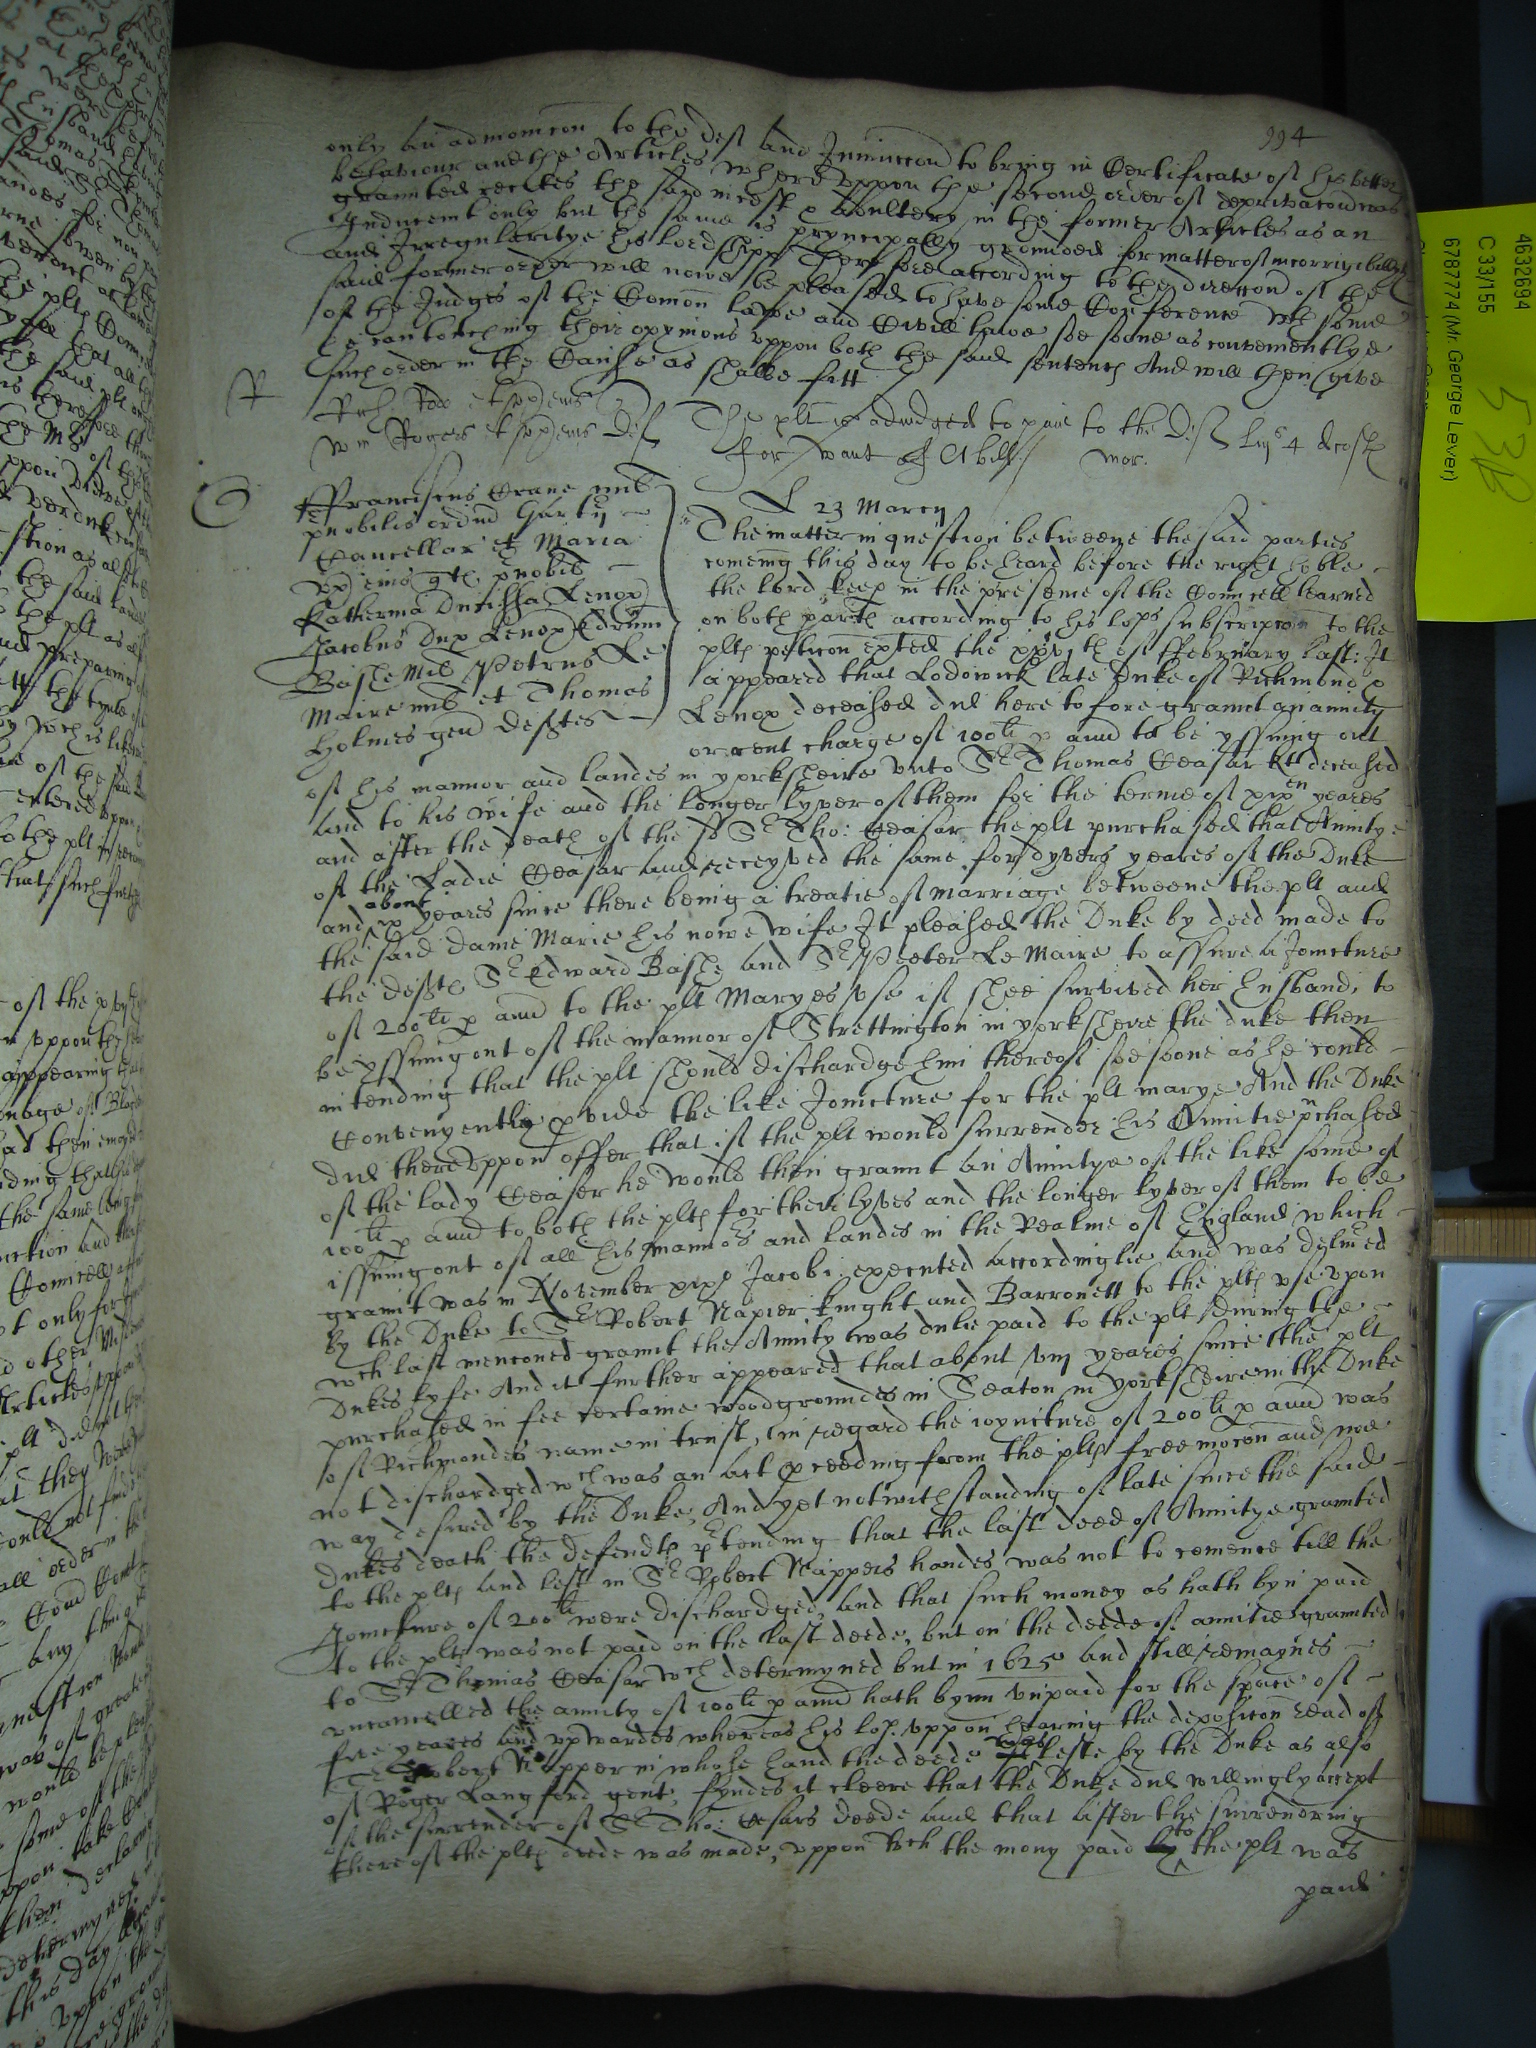 994
only an admonicon to the deft and Iniunccon to bring in Certificate of his better
behaviour and the Articles where vppon the second order of deprivacon was
graunted recites the said incest & adultery in the former Articles as an
Inducemt only but the same is pryncipally grounded for matter of incorrigibility
and Irregularitye his lordshipp therefore according to the direccon of the
said former order will nowe be pleased to have some Conference wth some
of the Judges of the Comon lawe and Civill lawe soe soone as convenientlye
he can touching their opynions vppon both the said sentencs And will then give
such order in the Cause as shalbe fitt
R
Wm Rogers et vx eius deft
The plt is adiudged to paie to the deft
for want of A bill
mor.
C
Franciscus Crane miles
prnobilis ordinis Garterij
Cancellar et Maria
vx eius qtes prnobilis
Katherina Ducissa Lenox
Jacobus Dux Lenox Edrus
Bashe miles Petrus Le
Maire miles et Thomas
Holmes gen deftes
23 Marcij
The matter in question betweene the said parties
comeing this day to be heard before the right hoble
the lord keep in the presence of the Councell learned
on both partes according to his lops subscripcon to the
pltes peticon exted the xxvth of ffebruary last: It
appeared that Lodowick late Duke of Richmond &
Lenox deceased did heretofore graunt an anuity
or rent charge of 100li p ann to be yssuing out
of his mannor and landes in yorksheire vnto Sr Thomas Ceasar kt deceased
and to his wife and the longer lyver of them for the terme of years
and after the death of the sd Sr Tho: Ceasar the plt purchased that Anuitye
of the Ladie Ceasar and receyved the same for dyvers yeares of the Duke
and about x yeares since there being a treatie of marriage betweene the plt and
the said dame Marie his nowe wife It pleased the Duke by deed made to
the deftes Sr Edward Bashe and Sr Peeter Le Maire to assure a Joincture
of 200li p ann to the plt Maryes vse if shee survived her husband, to
be yssuing out of the mannor of Strettington in yorksheire the duke then
intending that the plt should dischardge him thereof soe soone as he could
convenyently pvide the like Joincture for the plt marye And the Duke
did therevppon offer that if the plt would surrender his Anuitie prchased
of the lady Ceasar he would then graunt an Anuitye of the like some of
100li p ann to both the pltes for their lyves and the longer lyver of them to be
issuing out of all his mannors and landes in the Realme of England which
graunt was in November xixo Jacobi executed accordinglie and was delived
by the Duke to Sr Robert Napier knight and Barronett to the pltes vse vpon
wch last menconed graunt the Anuity was dulie paid to the plt during the
Dukes lyfe And it further appeared that about viij yeares since the plt
purchased in fee certaine woodgroundes in Seaton in yorksheire in the Duke
of Richmondes name in trust, in regard the ioyncture of 200li p ann was
not dischardged wch was an act pceeding from the pltes free mocon and noe
way desired by the Duke, And yet notwithstanding of late since the said
Dukes death the defendtes ptending that the last deed of Anuitye graunted
to the pltes and left in Sr Robert Nappers handes was not to comence till the
Joincture of 200li were dischardged, and that such money as hath byn paid
to the plt was not paid on the last deede, but on the deede of anuitie graunted
to Sr Thomas Ceasar wch determyned but in 1625 and still remaynes
vncancelled the anuity of 100li p ann hath bynn vnpaid for the space of
five yeares and vpwardes whereas his lop. vppon hearing the deposicon read of
Sr Robert Napper in whose hand the deede was lefte by the Duke as also
of Roger Langford gent, fyndes it cleere that the Duke did willingly accept
of the surrender of Sr Tho: Cesars deede and that after the surrendering
thereof the pltes deede was made, vppon wch the mony paid to the plt was
paid
4632694
C 33/155
6787774 (Mr. George Lever)